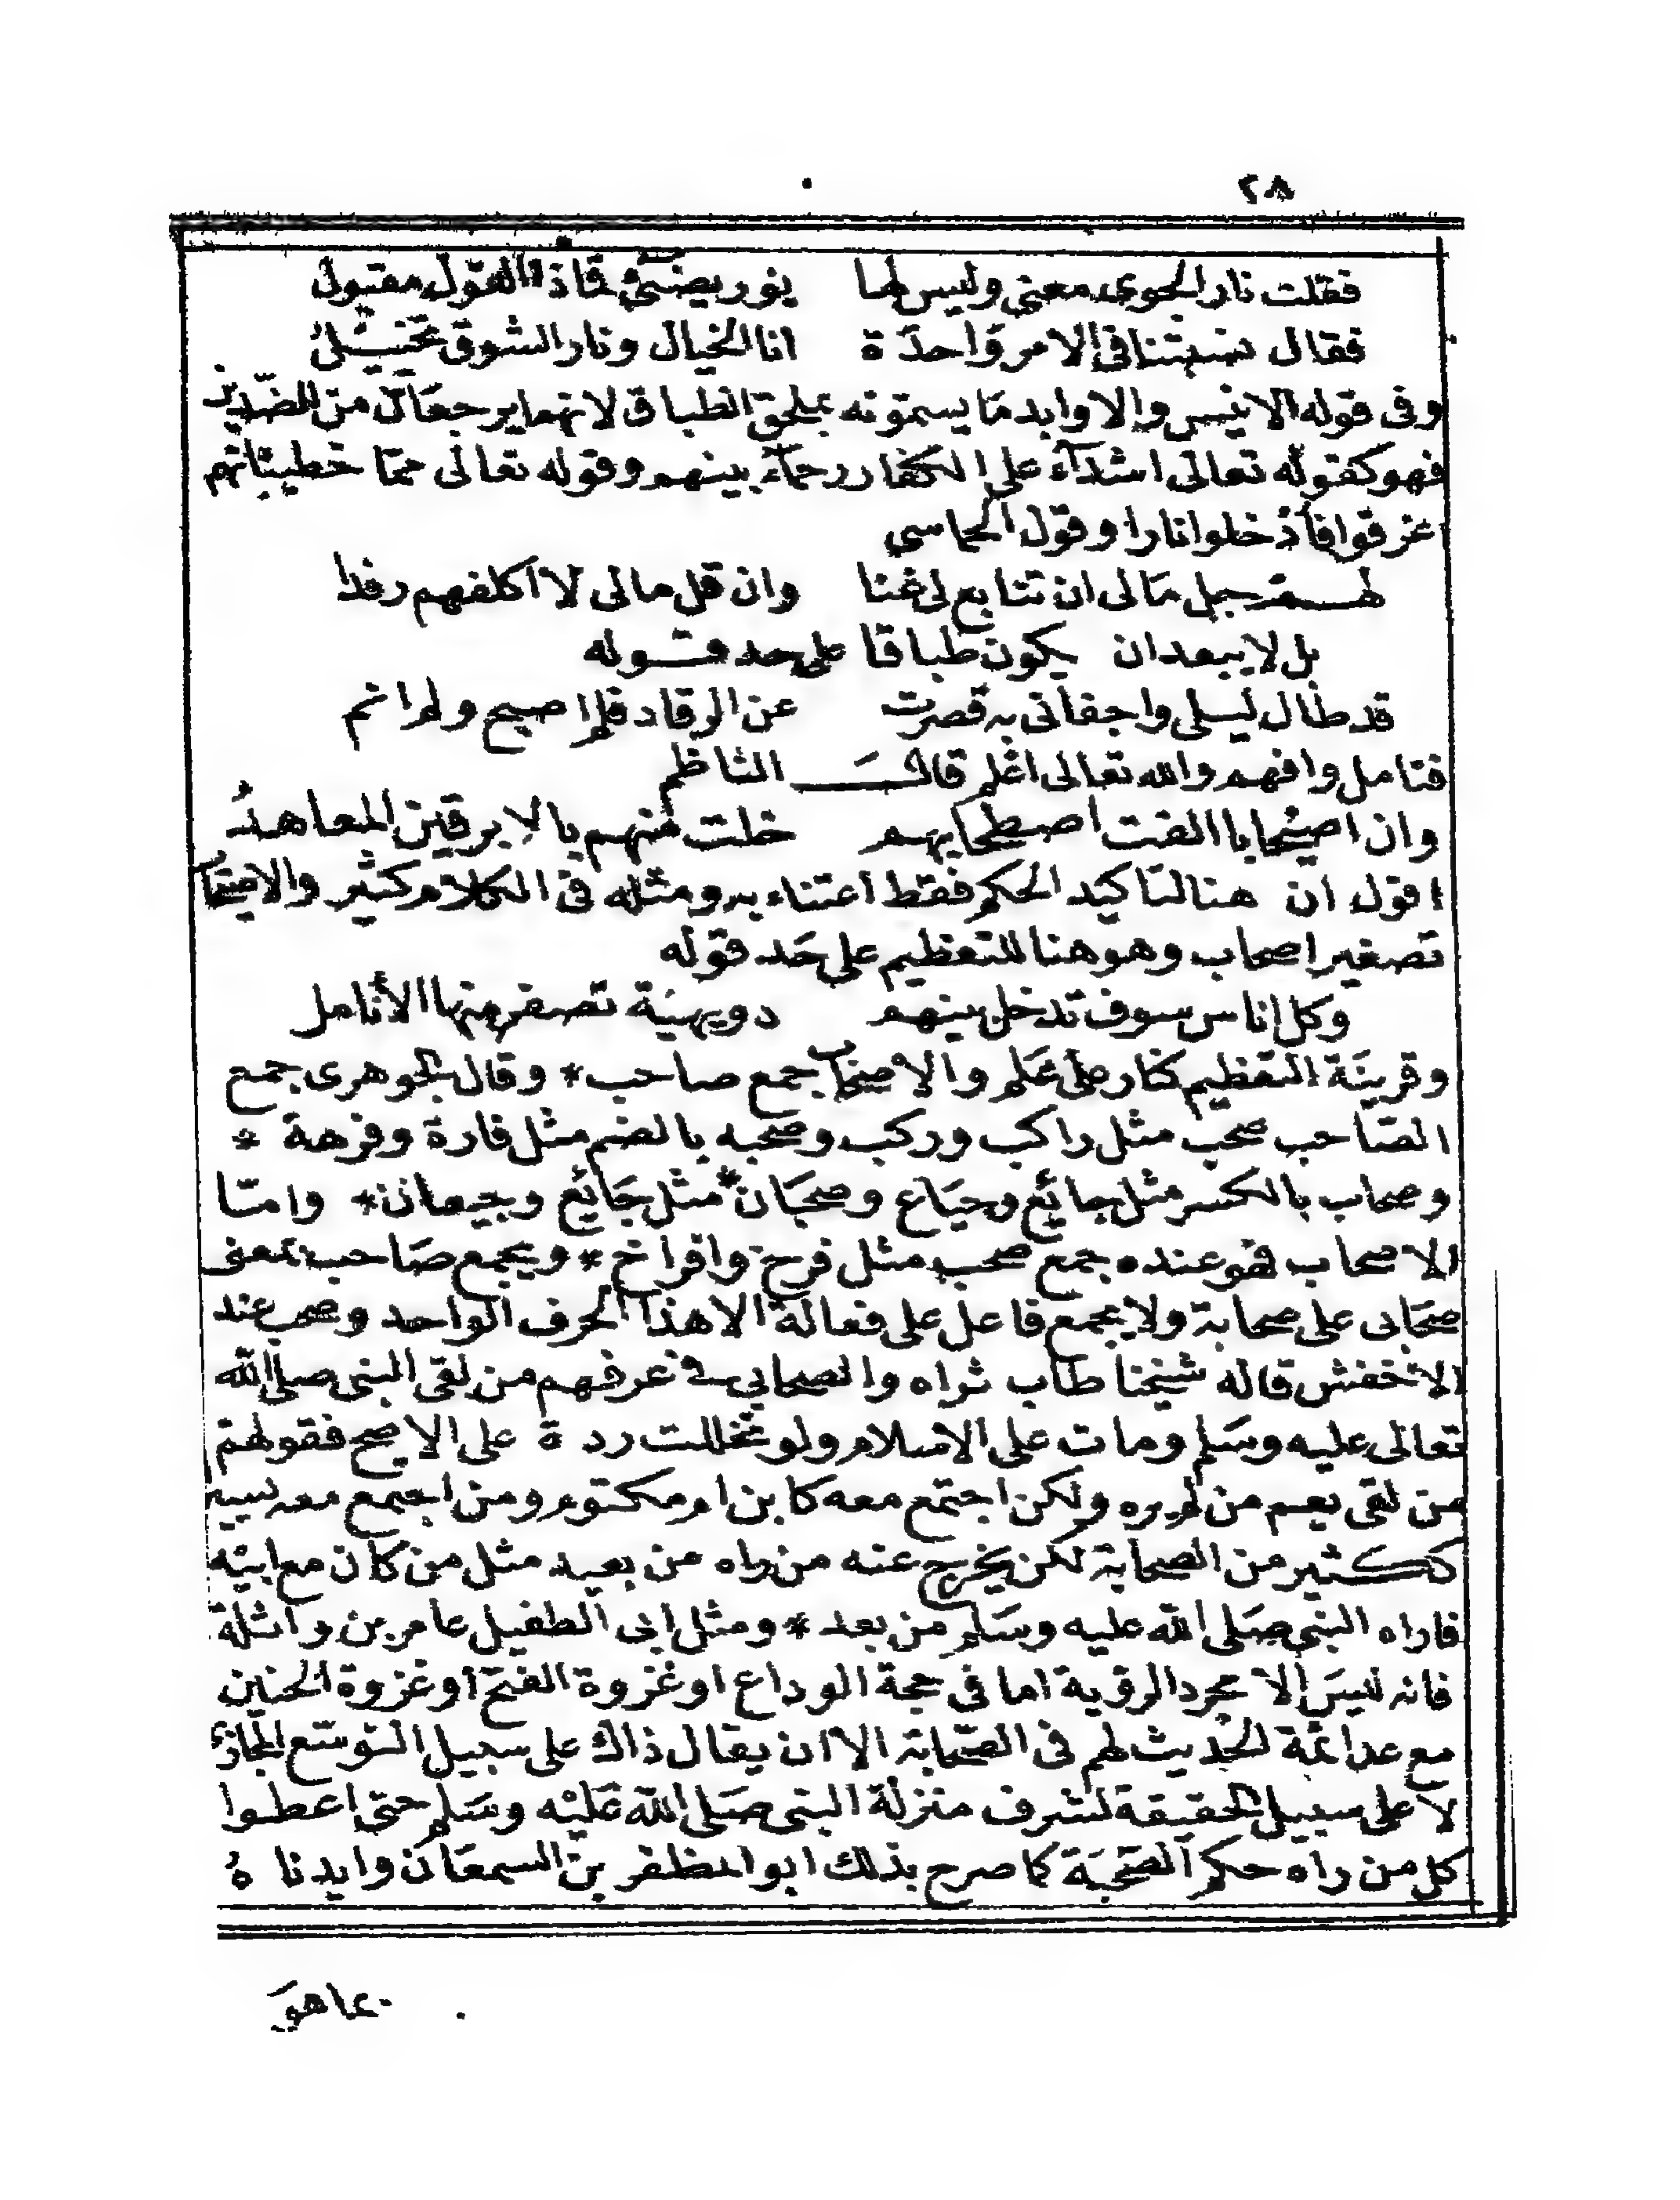 ٢٨
فقلت نار الجوى معنى وليس لها نور يضئ فماذا القول مقبول
فقال نسبتنا فى الامر واحدة انا الخيال ونار الشوق تخييل
وفى قوله الانيس والاوابد ما يسمونه بملحق الطباق لانهما يرجعان من الضدين
فهو كقوله تعالى اشدآء على الكفار رحمآء بينهم وقوله تعالى ممّا خطيئاتهم
اغرقوا فأدخلوا نارا وقول الحماسي
لهم جل مالى ان تتابع لى غنا وان قل مالى لا اكلفهم رفدا
بل لا يبعد ان يكون طباقا على حد قوله
قد طال ليلى واجفانى به قصرت عن الرقاد فلم اصبح ولم انم
فتامل وافهم والله تعالى اعلم قال الناظم
وان اصيحابا الفت اصطحابهم خلت منهم بالابرقين المعاهدُ
اقول ان هنا لتاكيد الحكم فقط اعتناء به ومثله فى الكلام كثير والاصيحاب
تصغير اصحاب وهو هنا للتعظيم على حد قوله
وكل اناس سوف تدخل بينهم دويهيّة تصفر منها الأنامل
وقرينة التعظيم كنار على علم والاصحاب جمع صاحب * وقال الجوهرى جمع
الصّاحب صحب مثل راكب وركب وصحبه بالضم مثل فارة وفرهة *
وصحاب بالكسر مثل جائع وجياع وصحبان * مثل جائع وجيعان * وامّا
الاصحاب فهو عنده جمع صحب مثل فرخ وافراخ * ويجمع صاحب بمعنى
صحابى على صحابة ولا يجمع فاعل على فعالة الا هذا الحرف الواحد وصحب عند
الاخفش قاله شيخنا طاب ثراه والصحابي في عرفهم من لقى النبى صلى الله
تعالى عليه وسلم ومات على الاسلام ولو تخللت ردة على الاصح فقولهم
من لقى يعم من لم يره ولكن اجتمع معه كابن ام مكتوم ومن اجتمع معه يسير
ككثير من الصحابة لكن يخرج عنه من راه من بعيد مثل من كان مع ابيه
فاراه النبى صلى الله عليه وسلم من بعد * ومثل ابى الطفيل عامر بن واثلة
فانه ليس الا مجرد الرؤية اما فى حجة الوداع او غزوة الفتح او غزوة الحنين
مع عد ائمة الحديث لهم فى الصحابة الا ان يقال ذاك على سبيل التوسّع المجازى
لا على سبيل الحقيقة لشرف منزلة النبى صلى الله عليه وسلم حتى اعطوا
كل من راه حكم الصحبة كما صرح بذلك ابو المظفر بن السمعان وايدناهُ